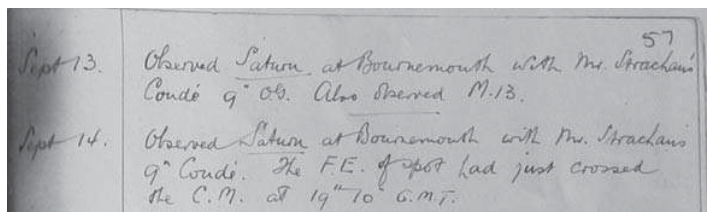 57
Sept 13. Observed Saturn at Bournemouth with Mr. Strachan's
Coudé 9" OG. Also observed M.13.
Sept 14. Observed Saturn at Bournemouth with Mr. Strachan's
9" Coudé. The F.E. of spot had just crossed
the C.M. at 19h 10m G.M.T.